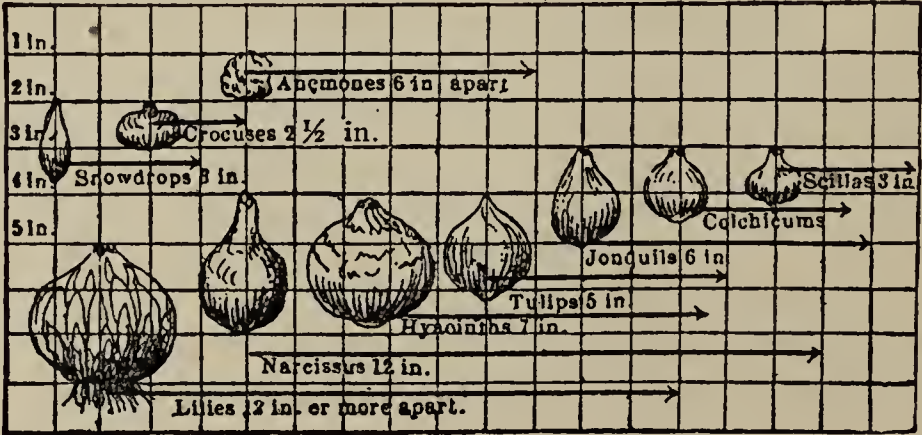 1 in.
2 in.
Anemones 6 in. apart
3 in.
Crocuses 2 ½ in.
4 in.
Snowdrops 3 in.
Scillas 3 in.
Colchicums
5 in.
Jonquils 6 in
Tulips 5 in.
Hyacinths 7 in.
Narcissus 12 in.
Lilies 12 in. or more apart.